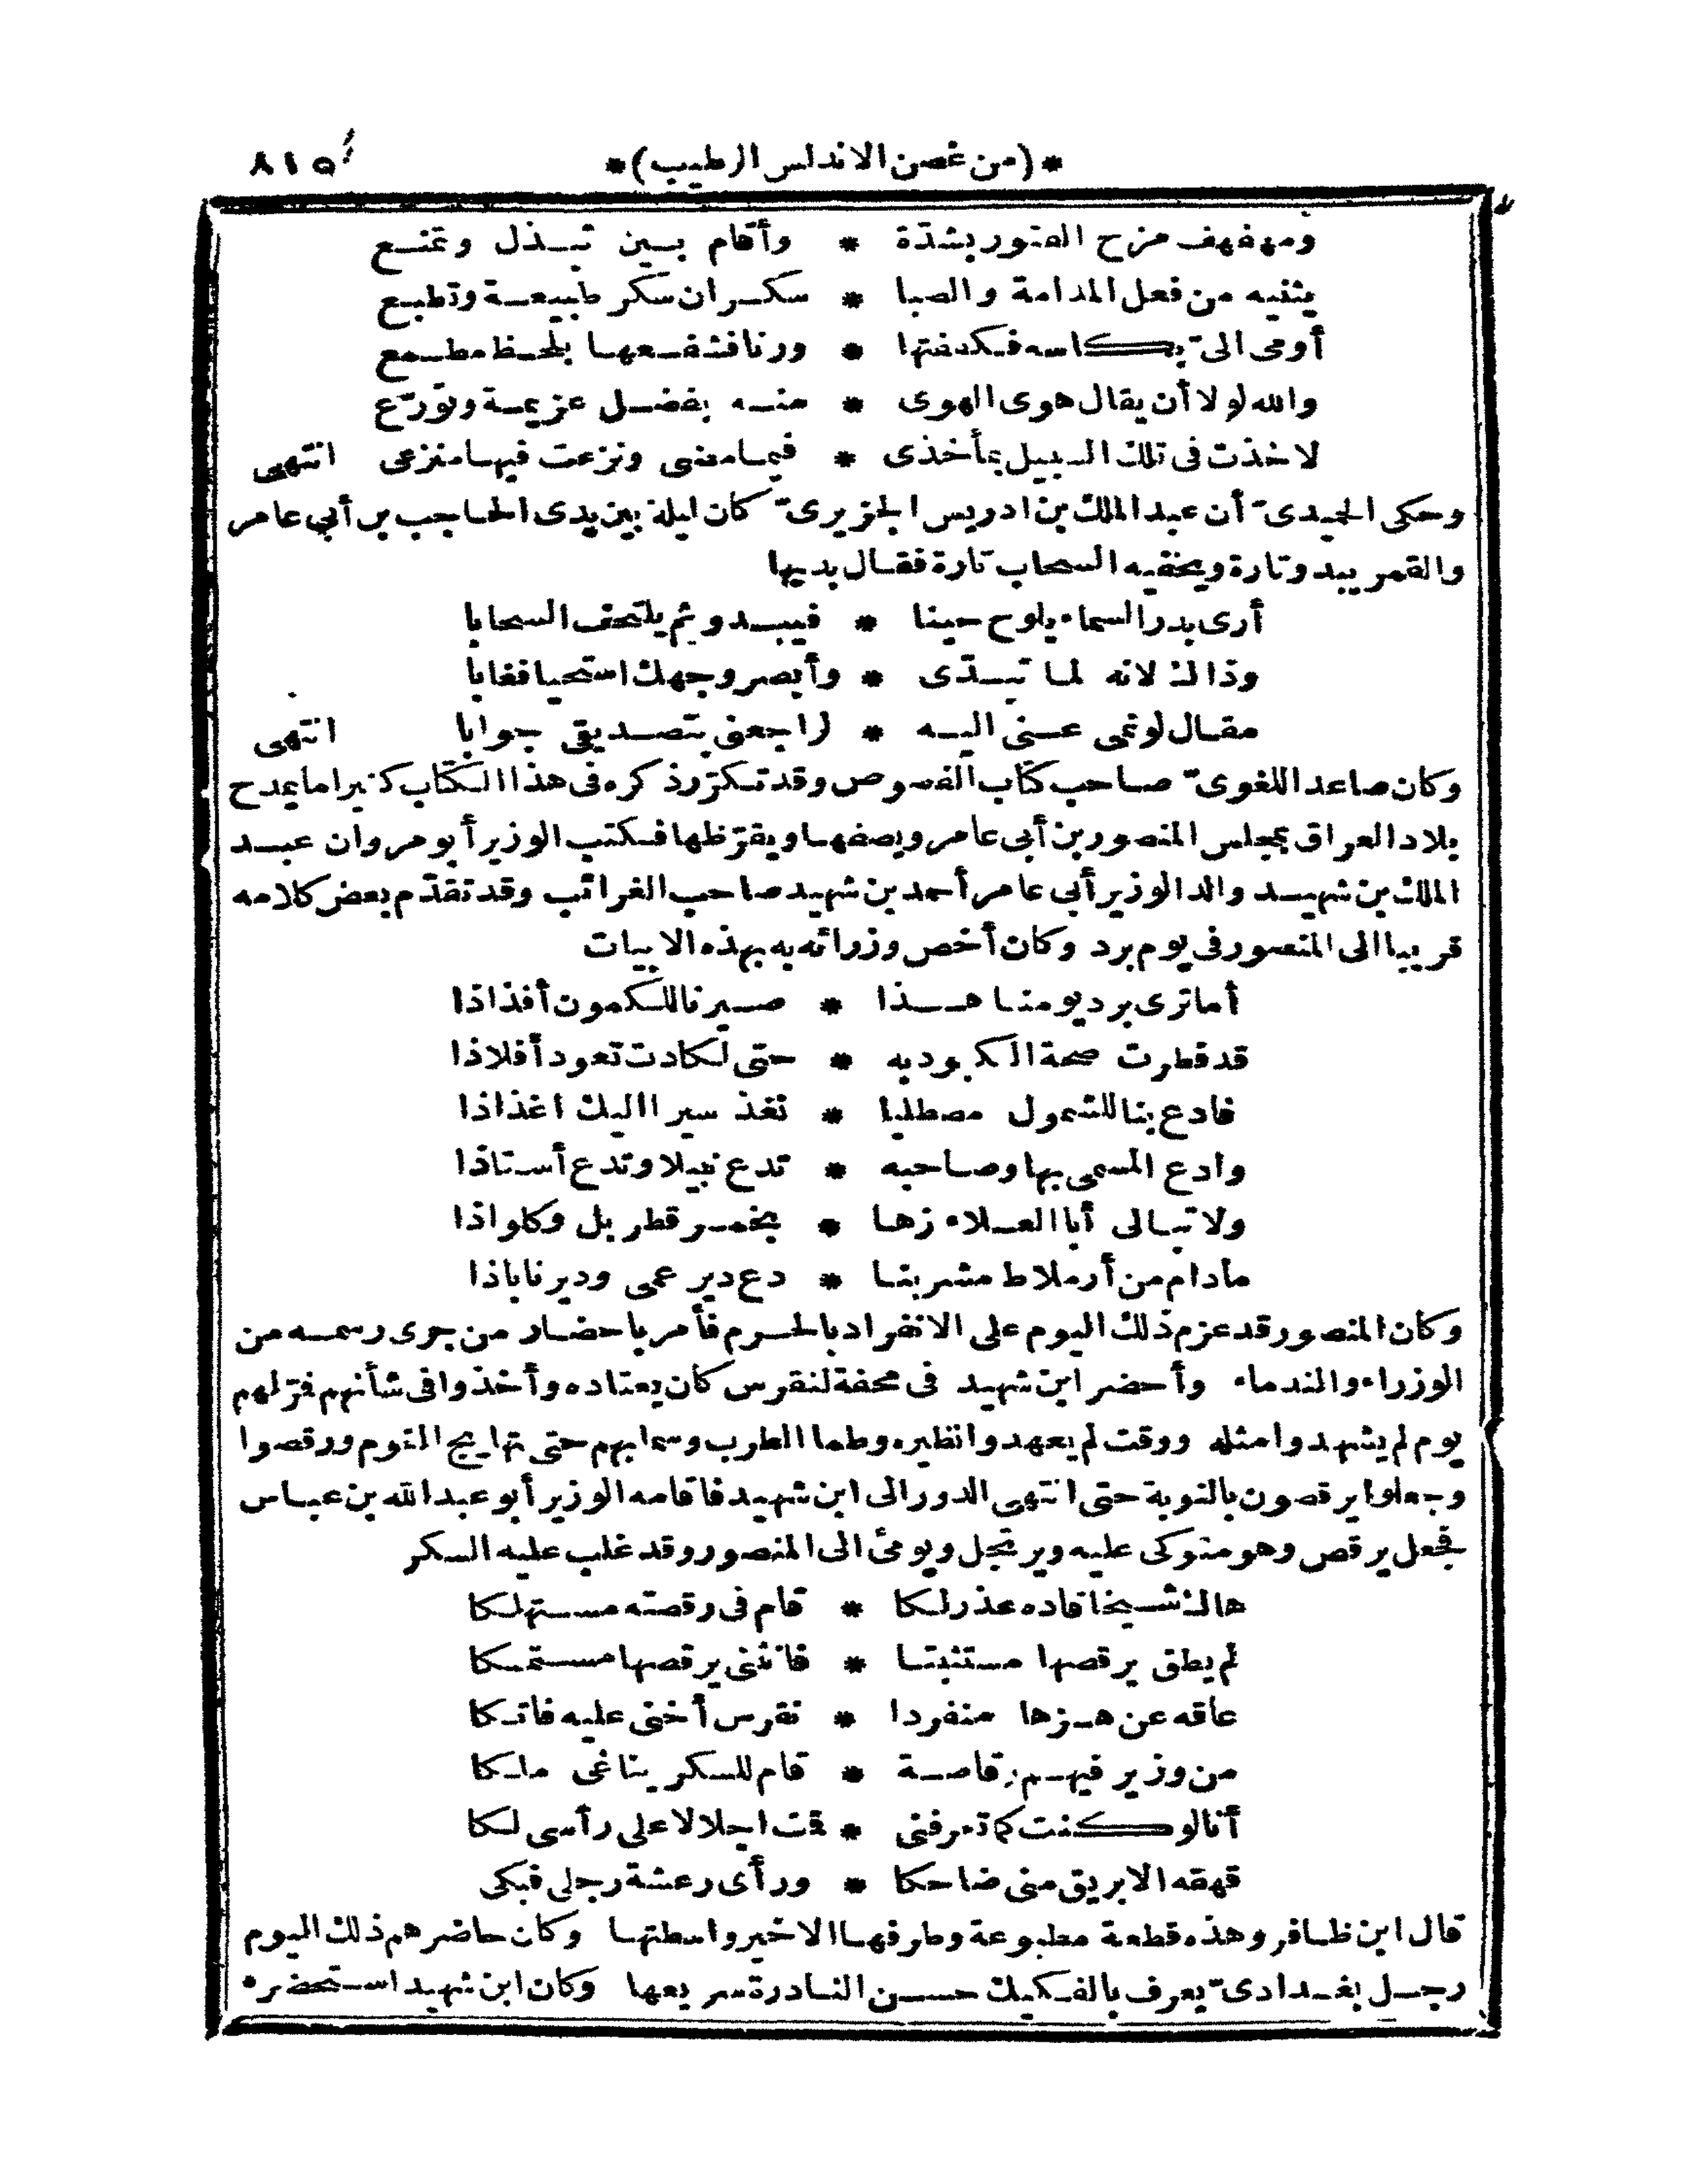 *(من غصن الاندلس الرطيب)* ٨١٥
ومهفهف مزج الفتور بشدّة * وأقام بين تبذل وتمنع
يثنيه من فعل المدامة والصبا * سكران سكر طبيعة وتطبع
أومى الىّ بكاسه فكففتها * ورنا فشفعها بلحظ مطمع
والله لولا أن يقال هوى الهوى * منه بفضل عزيمة وتورّع
لاخذت فى تلك السبيل بمأخذى * فيما مضى ونزعت فيها منزعى انتهى
وحكى الحميدىّ أن عبد الملك بن ادريس الجزيرىّ كان ليلة بين يدى الحاجب بن أبي عامر
والقمر يبدو تارة ويخفيه السحاب تارة فقال بديها
أرى بدر السماء يلوح حينا * فيبدو ثم يلتحف السحابا
وذاك لانه لما تبدّى * وأبصر وجهك استحيا فغابا
مقال لو نمى عنى اليه * لراجعنى بتصديقى جوابا انتهى
وكان صاعد اللغوىّ صاحب كتاب الفصوص وقد تكرّر ذكره فى هذا الكتاب كثيرا ما يمدح
بلاد العراق بمجلس المنصور بن أبى عامر ويصفها ويقرّظها فكتب الوزير أبو مروان عبد
الملك بن شهيد والد الوزير أبي عامر أحمد بن شهيد صاحب الغرائب وقد تقدّم بعض كلامه
قريبا الى المنصور فى يوم برد وكان أخص وزرائه به بهذه الابيات
أما ترى برد يومنا هذا * صيرنا للكمون أفذاذا
قد قطرت صحة الكبود به * حتى لكادت تعود أفلاذا
فادع بنا للشمول مصطليا * نغذ سيرا اليك اغذاذا
وادع المسمى بها وصاحبه * تدع نبيلا وتدع أستاذا
ولا تبالى أبا العلاء زها * بخمر قطر بل وكلواذا
مادام من أرملاط مشربنا * دع دير عمى ودير ناباذا
وكان المنصور قد عزم ذلك اليوم على الانفراد بالحرم فأمر باحضار من جرى رسمه من
الوزراء والندماء وأحضر ابن شهيد فى محفة لنقرس كان يعتاده وأخذوا فى شأنهم فترلهم
يوم لم يشهدوا مثله ووقت لم يعهدوا نظيره وطما الطرب وسما بهم حتى تهايج القوم ورقصوا
وجعلوا يرقصون بالنوبة حتى انتهى الدور الى ابن شهيد فاقامه الوزير أبو عبد الله بن عباس
فجعل يرقص وهو متوكى عليه ويرتجل ويومئ الى المنصور وقد غلب عليه السكر
هاك شيخا قاده عذر لكا * قام فى رقصته مستهلكا
لم يطق يرقصها مستثبتا * فانثنى يرقصها مستمسكا
عاقه عن هزها منفردا * نقرس أخنى عليه فاتكا
من وزير فيهم رقاصة * قام للسكر يناغى ملكا
أنا لو كنت كما تعرفنى * قمت اجلالا على رأسى لكا
قهقه الابريق منى ضاحكا * ورأى رعشة رجلى فبكى
قال ابن ظافر وهذه قطعة مطبوعة وطرفها الاخير واسطتها وكان حاضرهم ذلك اليوم
رجل بغدادىّ يعرف بالفكيك حسن النادرة سريعها وكان ابن شهيد استحضره